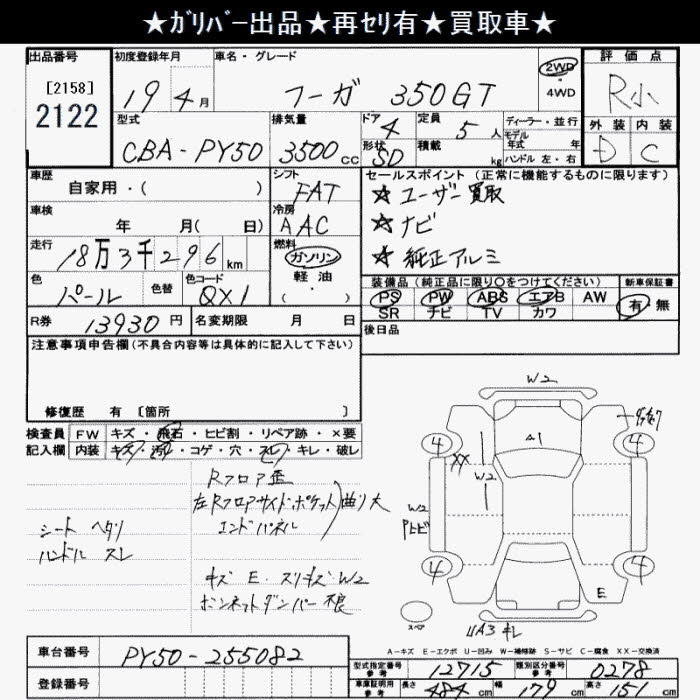 ★ｶﾞﾘﾊﾞｰ出品★再ｾﾘ有★買取車★
出品番号
[2158]
2122
初度登録年月
19年4月
車名・グレード
フーガ 350GT
2WD
・
4WD
評価点
R小
外装 内装
D C
型式
CBA-PY50
排気量
3500cc
ドア
4
形状
SD
定員
5人
積載
kg
ディーラー・並行
モデル
年式 年
ハンドル 左・右
車歴
自家用・( )
シフト
FAT
車検
年 月( 日)
冷房
AAC
走行
18万3千296km
燃料
ガソリン
・
軽油
・
( )
色
パール
色替
色コード
QX1
R券 13930円
名変期限 月 日
セールスポイント(正常に機能するものに限ります)
☆ユーザー買取
☆ナビ
☆純正アルミ
装備品(純正品に限り○をつけてください)
PS PW ABS エアB AW
SR ナビ TV カワ
新車保証書
有・無
後日品
注意事項申告欄(不具合内容等は具体的に記入して下さい)
修復歴 有 [箇所 ]
検査員
記入欄
FW キズ・飛石・ヒビ割・リペア跡・×要
内装 キズ・汚れ・コゲ・穴・スレ・キレ・破レ
Rフロア歪
左Rフロアサイド・ポケット
エンドパネル
曲り大
シート ヘタリ
ハンドル スレ
キズ E. スリキズ W2
ボンネットダンパー不良
W2
A1
4
4
XX
W2
W2
4
4
E
スペア
A-キズ E-エクボ U-凹み W-補修跡 S-サビ C-腐食 XX-交換済
車台番号
PY50-255082
登録番号
型式指定番号
参考
12715
類別区分番号
参考
0278
車庫証明用
参考
長さ 484cm
幅 179cm
高さ 151cm